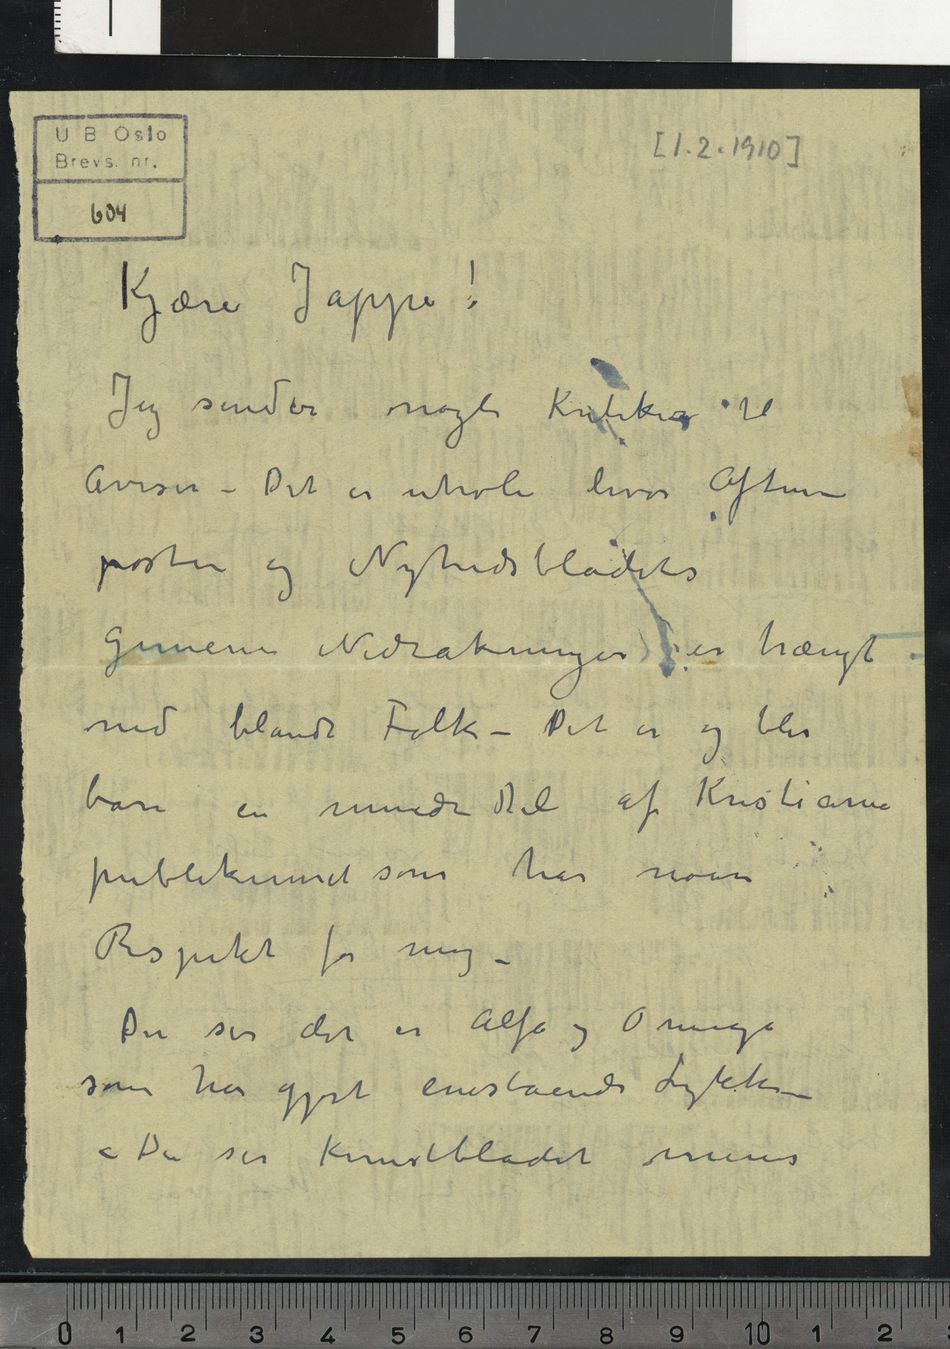 U B Oslo
Brevs. nr.
604
[1.2.1910]
Kjære Jappe!
Jeg sender nogle Kritiker til
Aviser – Det er utrole hvor Aften
posten og Nyhedsbladets
Gemene Nedrakninger er trængt
ned blandt Folk – Det er og blir
bare en mindre Del af Kristiania
publikumet som har noen
Respekt for mig –
Du ser det er Alfa og Omega
som har gjort enestaaende Lykke –
Du ser Kunstbladet mines
0 1 2 3 4 5 6 7 8 9 10 1 2